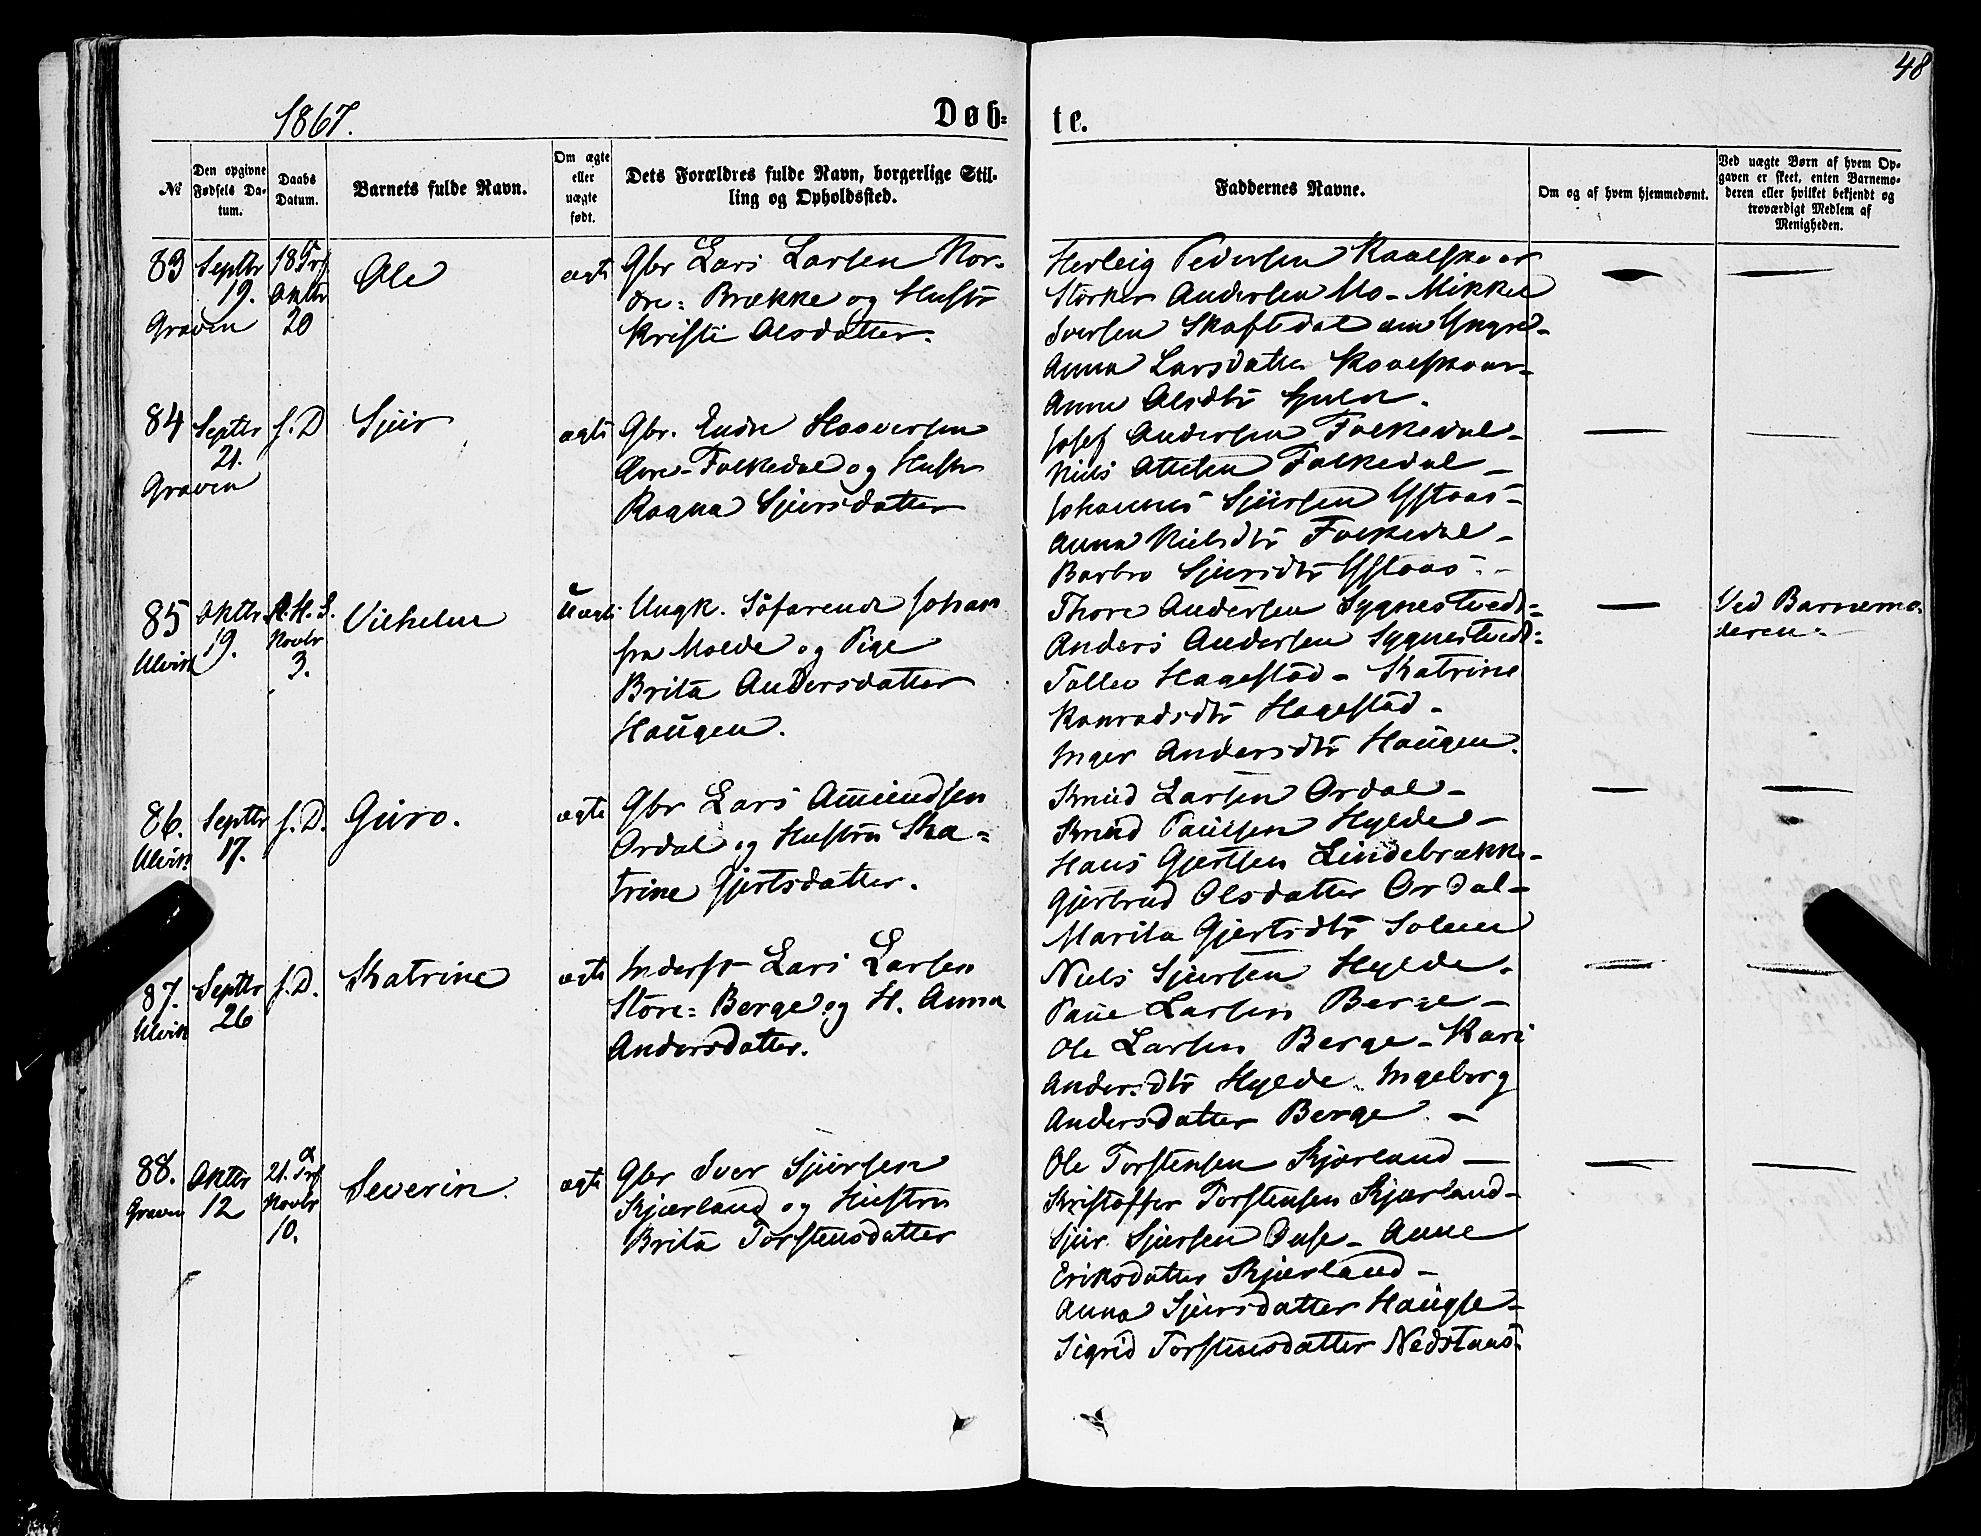 48
1867.
Døb=
te.
№
Den opgivne Fødsels Datum.
Daabs Datum.
Barnets fulde Navn.
Om ægte eller uægte født.
Dets Forældres fulde Navn, borgerlige Stilling og Opholdssted.
Faddernes Navne.
Om og af hvem hjemmedøbt.
Ved uægte Børn af hvem Opgaven er skeet, enten Barnemoderen eller hvilket bekjendt og troværdigt Medlem af Menigheden.
83 Septbr 19. Graven
18 Trf. Oktbr 20
Ole
ægte
Gbr Lars Larsen Nor=
dre= Brække og Hustr
Kristi Olsdatter.
Herleig Pedersen Kaalskaar
Størker Andersen Mo - Mikkel
Iversen Skaftedal
Anna Larsdatter Kaalskaar -
Anna Olsdtr
84 Septbr 21. Graven
s. D
Sjur
ægte
Gbr. Endre Haaversen
Øvre- Folkedal og Hustr
Ragna Sjursdatter
Josef Andersen Folkedal -
Niels Folkedal -
Johannes Sjursen Ystaas -
Anna Nielsdtr Folkedal -
Barbro Sjursdtr Ystaas -
85 Oktbr 19. Ulvik
A. H. S. Novbr 3.
Vilhelm
Uægte
Ungk. Søfarende Johan
fra Molde og Pige
Brita Andersdatter
Haugen.
Thore Andersen Sygnestvedt=
Anders Andersen Sygnestvedt=
Tollev Hagestad - Katrine
Konradsdtr Hagestad -
Inger Andersdtr Haugen.
Ved Barnemo-
deren.
86. Septbr 17. Ulvik
s. D.
Guro.
ægte
Gbr Lars Amundsen
Ordal og Hustru Ka=
trine Gjertsdatter.
Knud Larsen Ordal -
Knud Paulsen Hylde -
Hans Gjertsen Lindebrække -
Gjertrud Olsdatter Ordal -
Marita Gjertsdtr Solem
87. Septbr 26 Ulvik
s. D.
Katrine
ægte
Inderst Lars Larsen
Store= Berge og H. Anna
Andersdatter.
Niels Sjursen Hylde.
Paul Larsen Berge -
Ole Larsen Berge - Kari
Andersdtr Hylde Ingeborg
Andersdatter Berge. -
88. Oktbr 12 Graven
21. Trf Novbr 10.
Severin.
ægte
Gbr Iver Sjursen
Kjærland og Hustru
Brita Torstensdatter
Ole Torstensen Kjærland -
Kristoffer Torstensen Kjærland -
Sjur Sjursen - Anne
Eriksdatter Kjærland -
Anna Sjursdatter Haugse -
Sigrid Torstensdatter Nedstaas.